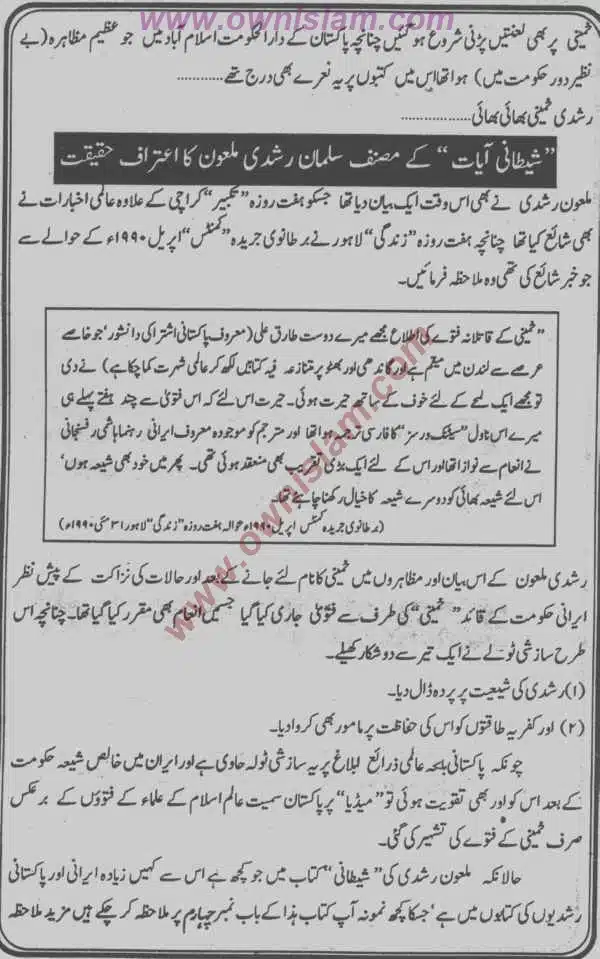 www.ownislam.com
خمینی پر بھی لعنتیں پڑنی شروع ہو گئیں چنانچہ پاکستان کے دارالحکومت اسلام آباد میں جو عظیم مظاہرہ (بے
نظیر دور حکومت میں) ہوا تھا اس میں کتبوں پر یہ نعرے بھی درج تھے ..................
رشدی خمینی بھائی بھائی ..................
"شیطانی آیات" کے مصنف سلمان رشدی ملعون کا اعتراف حقیقت
ملعون رشدی نے بھی اس وقت ایک بیان دیا تھا جسکو ہفت روزہ "تکبیر" کراچی کے علاوہ عالمی اخبارات نے
بھی شائع کیا تھا چنانچہ ہفت روزہ "زندگی" لاہور نے برطانوی جریدہ "کمنٹس" اپریل ۱۹۹۰ء کے حوالے سے
جو خبر شائع کی تھی وہ ملاحظہ فرمائیں۔
"خمینی کے قاتلانہ فتوے کی اطلاع مجھے میرے دوست طارق علی (معروف پاکستانی اشتراکی دانشور' جو خاصے
عرصے سے لندن میں مقیم ہے اور گاندھی اور بھٹو پر متنازعہ فیہ کتابیں لکھ کر عالمی شہرت کما چکا ہے) نے دی
تو مجھے ایک لمحے کے لئے خوف کے ساتھ حیرت ہوئی۔ حیرت اس لئے کہ اس فتویٰ سے چند ہفتے پہلے ہی
میرے اس ناول "سیٹنک ورسز" کا فارسی ترجمہ ہوا تھا اور مترجم کو موجودہ معروف ایرانی رہنما ہاشمی رفسنجانی
نے انعام سے نوازا تھا اور اس کے لئے ایک بڑی تقریب بھی منعقد ہوئی تھی۔ پھر میں خود بھی شیعہ ہوں'
اس لئے شیعہ بھائی کو دوسرے شیعہ کا خیال رکھنا چاہئے تھا۔
(برطانوی جریدہ کمنٹس اپریل ۱۹۹۰ء حوالہ ہفت روزہ "زندگی" لاہور ۳۱ مئی ۱۹۹۰ء)
رشدی ملعون کے اس بیان اور مظاہروں میں خمینی کا نام لئے جانے کے بعد اور حالات کی نزاکت کے پیش نظر
ایرانی حکومت کے قائد "خمینی" کی طرف سے فتویٰ جاری کیا گیا جسمیں انعام بھی مقرر کیا گیا تھا۔ چنانچہ اس
طرح سازشی ٹولے نے ایک تیر سے دو شکار کھیلے۔
(۱) رشدی کی شیعیت پر پردہ ڈال دیا۔
(۲) اور کفریہ طاقتوں کو اس کی حفاظت پر مامور بھی کروا دیا۔
چونکہ پاکستانی بلکہ عالمی ذرائع ابلاغ پر یہ سازشی ٹولہ حاوی ہے اور ایران میں خالص شیعہ حکومت
کے بعد اس کو اور بھی تقویت ہوئی تو "میڈیا" پر پاکستان سمیت عالم اسلام کے علماء کے فتوؤں کے برعکس
صرف خمینی کے فتوے کی تشہیر کی گئی۔
حالانکہ ملعون رشدی کی "شیطانی" کتاب میں جو کچھ ہے اس سے کہیں زیادہ ایرانی اور پاکستانی
رشدیوں کی کتابوں میں ہے' جسکا کچھ نمونہ آپ کتاب ہذا کے باب نمبر چہارم پر ملاحظہ کر چکے ہیں مزید ملاحظہ
www.ownislam.com